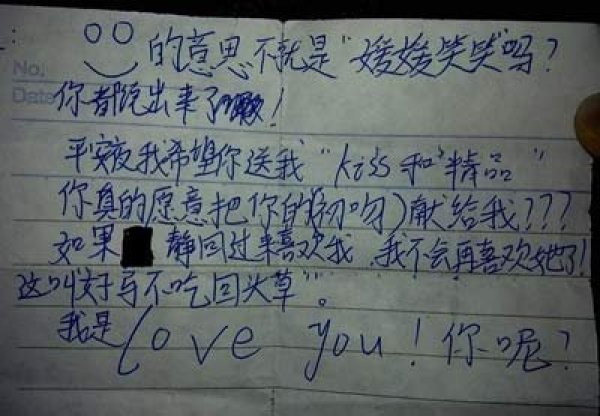 No.
的意思不就是"媛媛笑笑"吗?
Date
你都说出来了!
平安夜我希望你送我"kiss和"精品"
你真的愿意把你的(初吻)献给我???
如果 静回过来喜欢我,我不会再喜欢她了!
这叫"好马不吃回头草"。
我是love you!你呢?